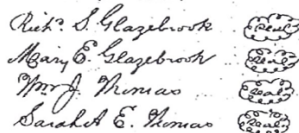 Richd. S. Glazebrook (Seal)
Mary E. Glazebrook (Seal)
Wm J. Thomas (Seal)
Sarah E. Thomas (Seal)